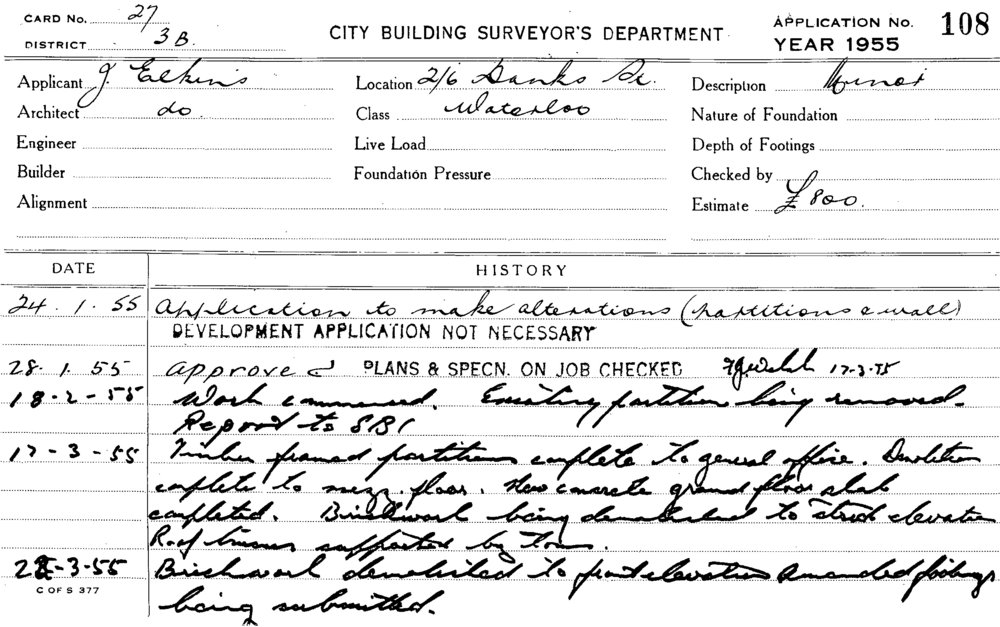 CARD No. 27
DISTRICT 3B.
CITY BUILDING SURVEYOR'S DEPARTMENT
APPLICATION No. 108
YEAR 1955
Applicant J. Elkins Location 2/6 Danks St. Description Minor
Architect do. Class Waterloo Nature of Foundation
Engineer Live Load Depth of Footings
Builder Foundation Pressure Checked by
Alignment Estimate £800.
DATE HISTORY
24.1.55 Application to make alterations (partitions & wall)
DEVELOPMENT APPLICATION NOT NECESSARY
28.1.55 approved PLANS & SPECN. ON JOB CHECKED 17-3-55
18-2-55 Work commenced. Existing partition being removed.
Report to SBI
17-3-55 Timber framed partitions complete to general office. Demolition
complete to mezz. floor. New concrete ground floor slab
completed. Brickwork being demolished to street elevation
Roof trusses supported by
-3-55 Brickwork demolished to front elevation Amended footings
being submitted.
C OF S 377